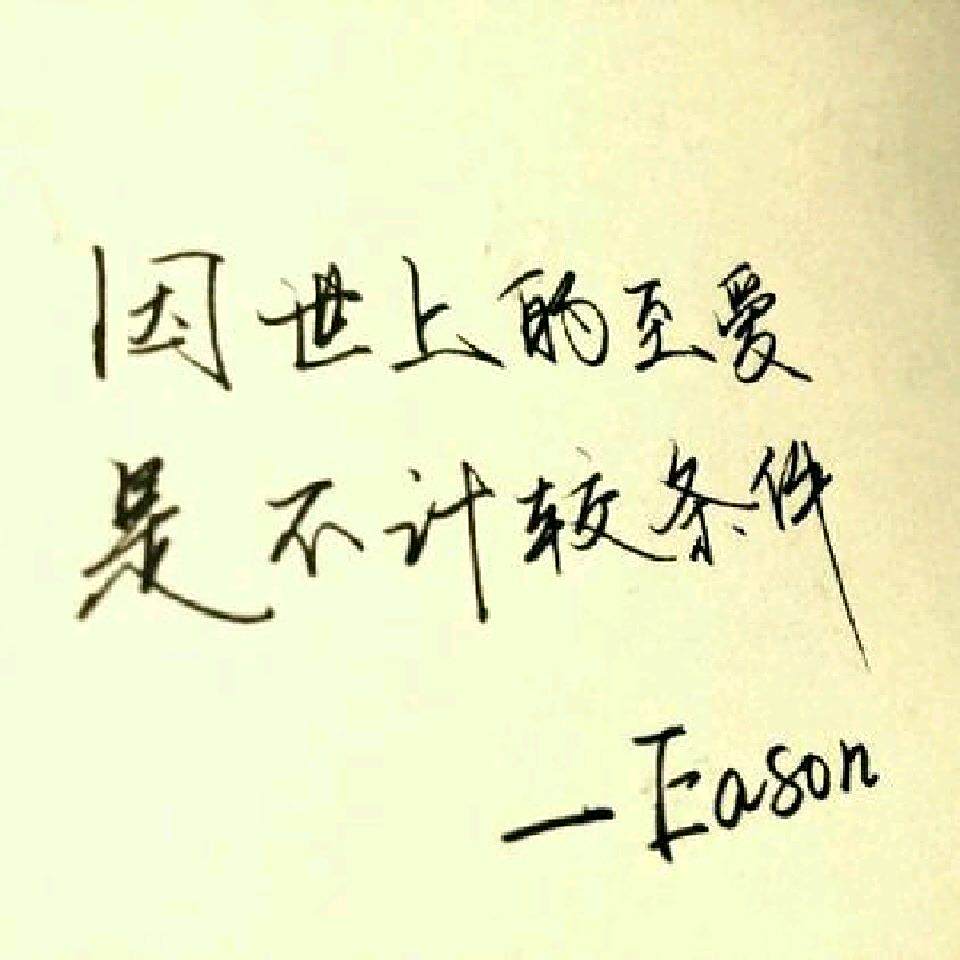 因世上的至爱
是不计较条件
—Eason